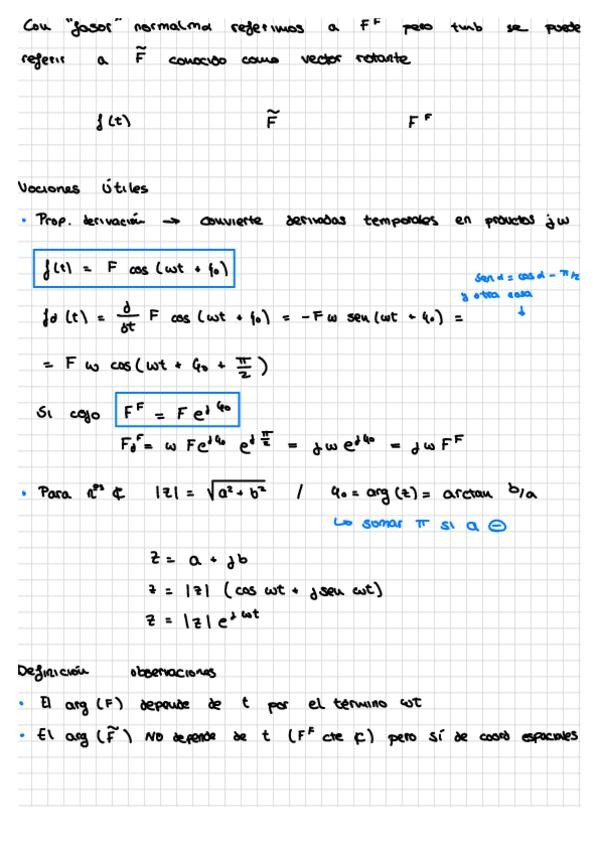 Con "fasor" normalmd referimos a F^F pero tmb se puede
referir a F̃ conocido como vector rotante
f(t) F̃ F^F
Nociones Útiles
• Prop. derivación → convierte derivadas temporales en productos jω
f(t) = F cos(ωt + φ₀)
sen α = cos α - π/2
y otra cosa
↓
fd(t) = d/dt F cos(ωt + φ₀) = -Fω sen(ωt + φ₀) =
= F ω cos(ωt + φ₀ + π/2)
Si cojo F^F = F e^jφ₀
Fd^F = ω F e^jφ₀ e^j π/2 = jω e^jφ₀ = jω F^F
• Para nºs ₵ |z| = √(a² + b²) / φ₀ = arg(z) = arctan b/a
↳ sumar π si a ⊖
z = a + jb
z = |z| (cos ωt + j sen ωt)
z = |z| e^jωt
Definición observaciones
• El arg(F) depende de t por el término ωt
• El arg(F̃) NO depende de t (F^F cte ₵) pero sí de coord espaciales